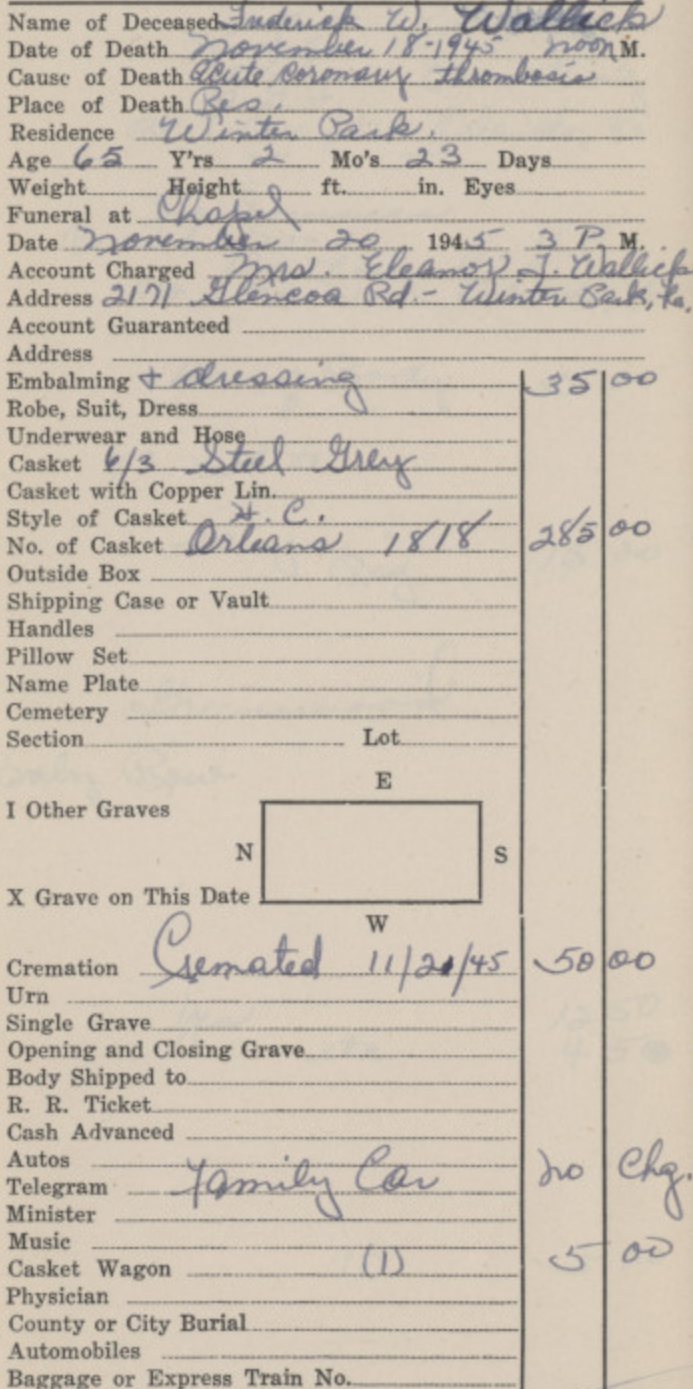 Name of Deceased Frederick W. Wallick
Date of Death November 18-1945 noon M.
Cause of Death Acute coronary thrombosis
Place of Death Res.
Residence Winter Park.
Age 65 Y'rs 2 Mo's 23 Days
Weight Height ft. in. Eyes
Funeral at Chapel
Date November 20 1945 3 P. M.
Account Charged Mrs. Eleanor J. Wallick
Address 2171 Glencoa Rd - Winter Park, Fla.
Account Guaranteed
Address
Embalming + dressing 35 00
Robe, Suit, Dress
Underwear and Hose
Casket 6/3 Steel Grey
Casket with Copper Lin.
Style of Casket H. C.
No. of Casket Orleans 1818 285 00
Outside Box
Shipping Case or Vault
Handles
Pillow Set
Name Plate
Cemetery
Section Lot
E
I Other Graves
N S
X Grave on This Date
W
Cremation Cremated 11/20/45 50 00
Urn
Single Grave
Opening and Closing Grave
Body Shipped to
R. R. Ticket
Cash Advanced
Autos
Telegram Family Car no Chg.
Minister
Music
Casket Wagon (1) 5 00
Physician
County or City Burial
Automobiles
Baggage or Express Train No.